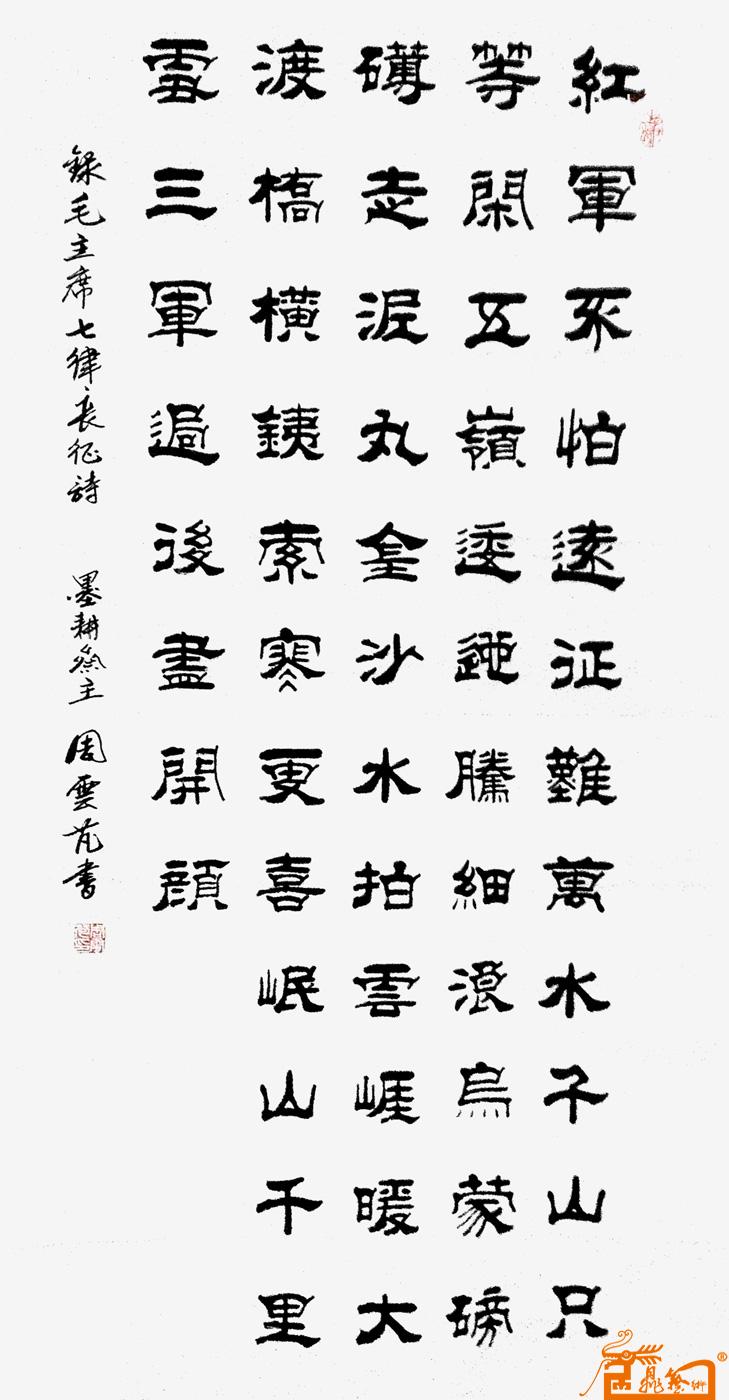 紅軍不怕遠征難萬水千山只
等閑五嶺逶迤騰細浪烏蒙磅
礴走泥丸金沙水拍雲崕暖大
渡橋橫銕索寒更喜岷山千里
雪三軍過後盡開顏
錄毛主席七律長征詩 墨耕齋主 周雲芃書